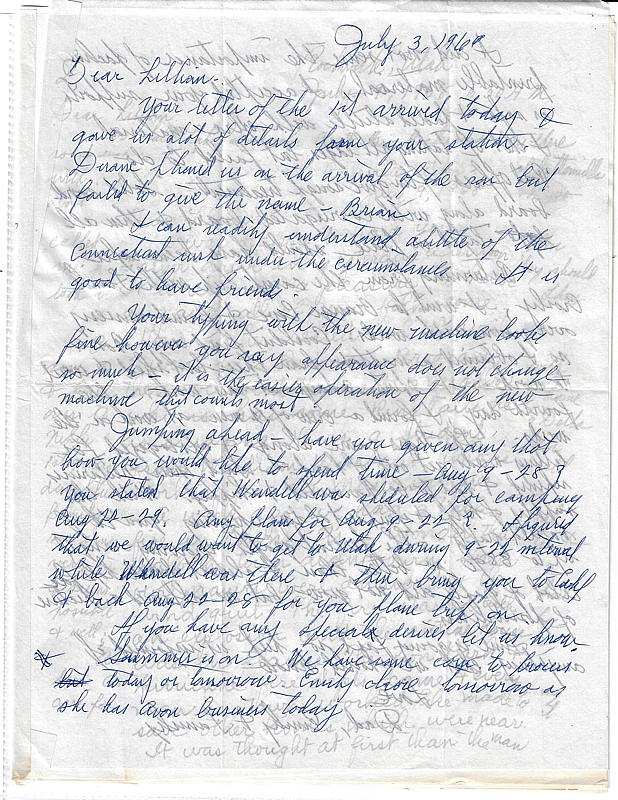 July 3, 196
Dear Lillian.
Your letter of the 1st arrived today &
gave us alot of details from your station.
Duane phoned us on the arrival of the son but
failed to give the name - Brian
I can readily understand alittle of the
Connecticut under the circumstances It is
good to have friends.
Your typing with the new machine looks
fine however you say appearance does not change
so much - it is the easier operation of the new
machine that counts most.
Jumping ahead - have you given any thot
how you would like to spend time - Aug 9-28?
You stated that Wendell was sheduled for camping
Aug 22-29. Any plan for Aug 9-22?. I figured
that we would want to get to Utah during 9-22 interval
while Wendell was there & then bring you to Calif
& back Aug 22-28 for you plane trip on.
If you have any special desires let us know.
Summer is on. We have some
today or tomorrow Emily tomorrow as
she has avon business today.
were near
It was thought at first than the man